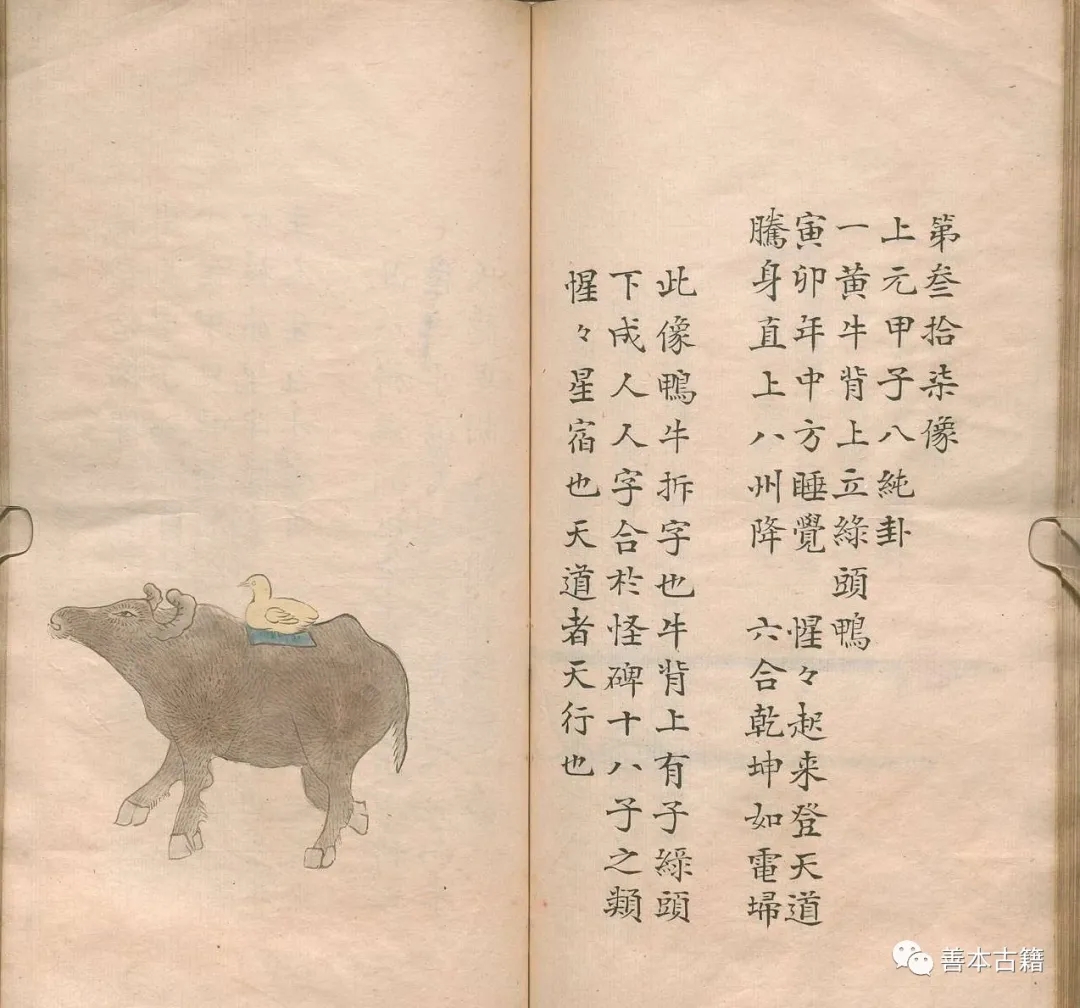 第叁拾柒像
上元甲子八純卦
一黃牛背上立綠頭鴨
寅卯年中方睡覺 惺々起来登天道
騰身直上八州降 六合乾坤如電埽
此像鴨牛拆字也牛背上有子綠頭
下成人人字合於怪碑十八子之類
惺々星宿也天道者天行也
善本古籍